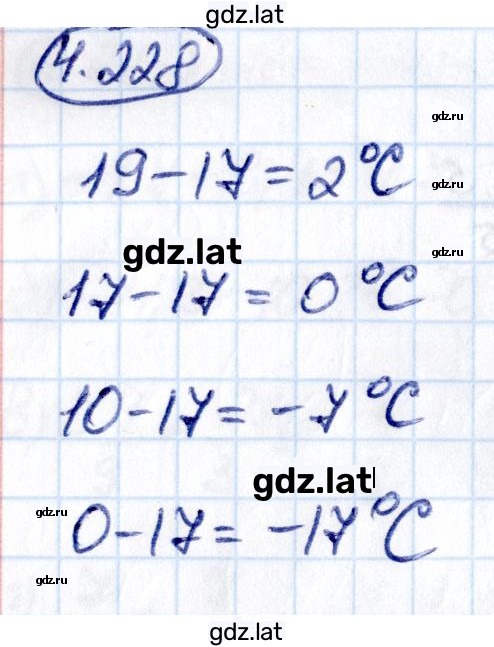 gdz.lat
4.228
gdz.ru
19-17=2°C
gdz.ru
gdz.lat
gdz.ru
17-17=0°C
10-17=-7°C
gdz.lat
gdz.ru
0-17=-17°C
gdz.ru
gdz.lat